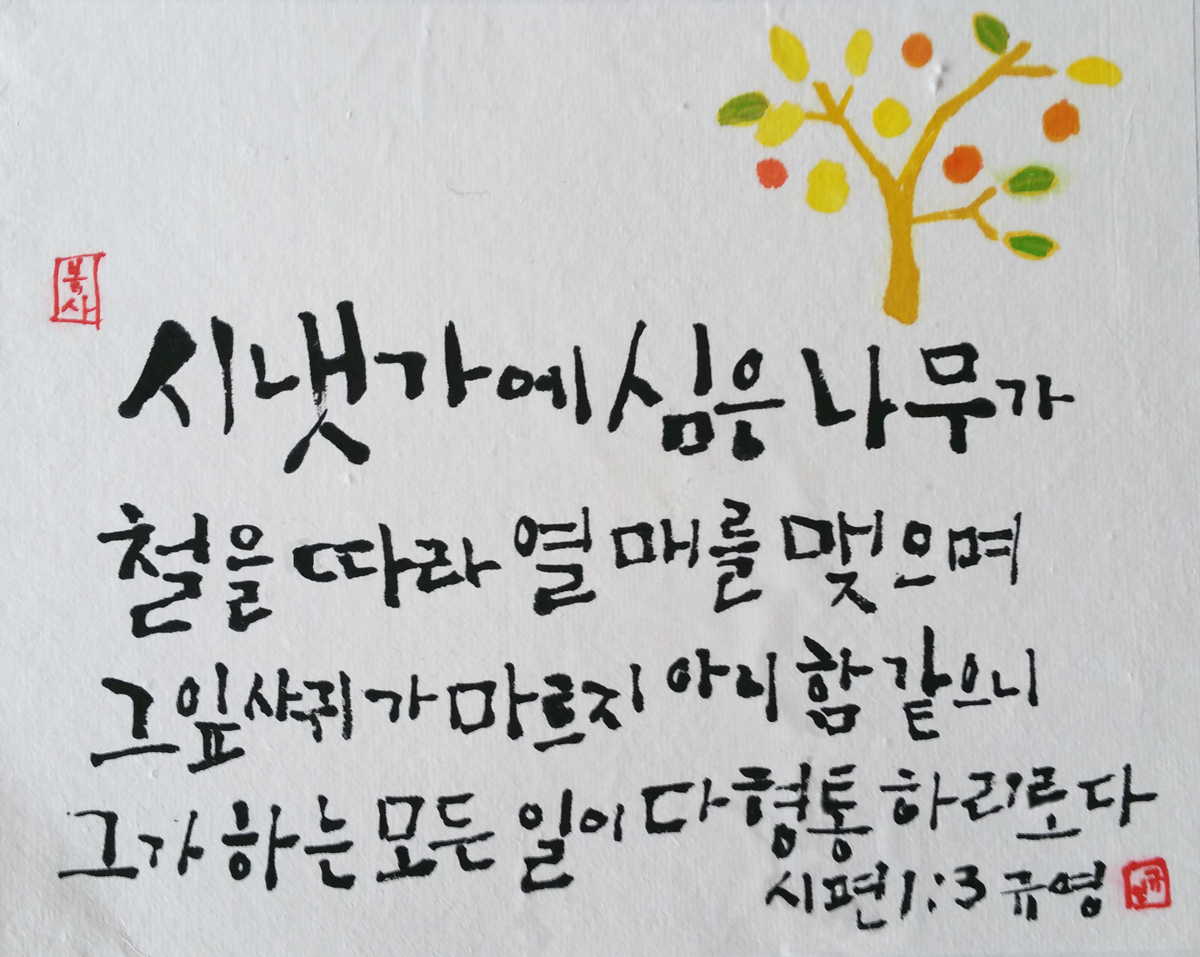 봉사
시냇가에 심은 나무가
철을 따라 열매를 맺으며
그 잎사귀가 마르지 아니함 같으니
그가 하는 모든 일이 다 형통하리로다
시편 1:3 규영